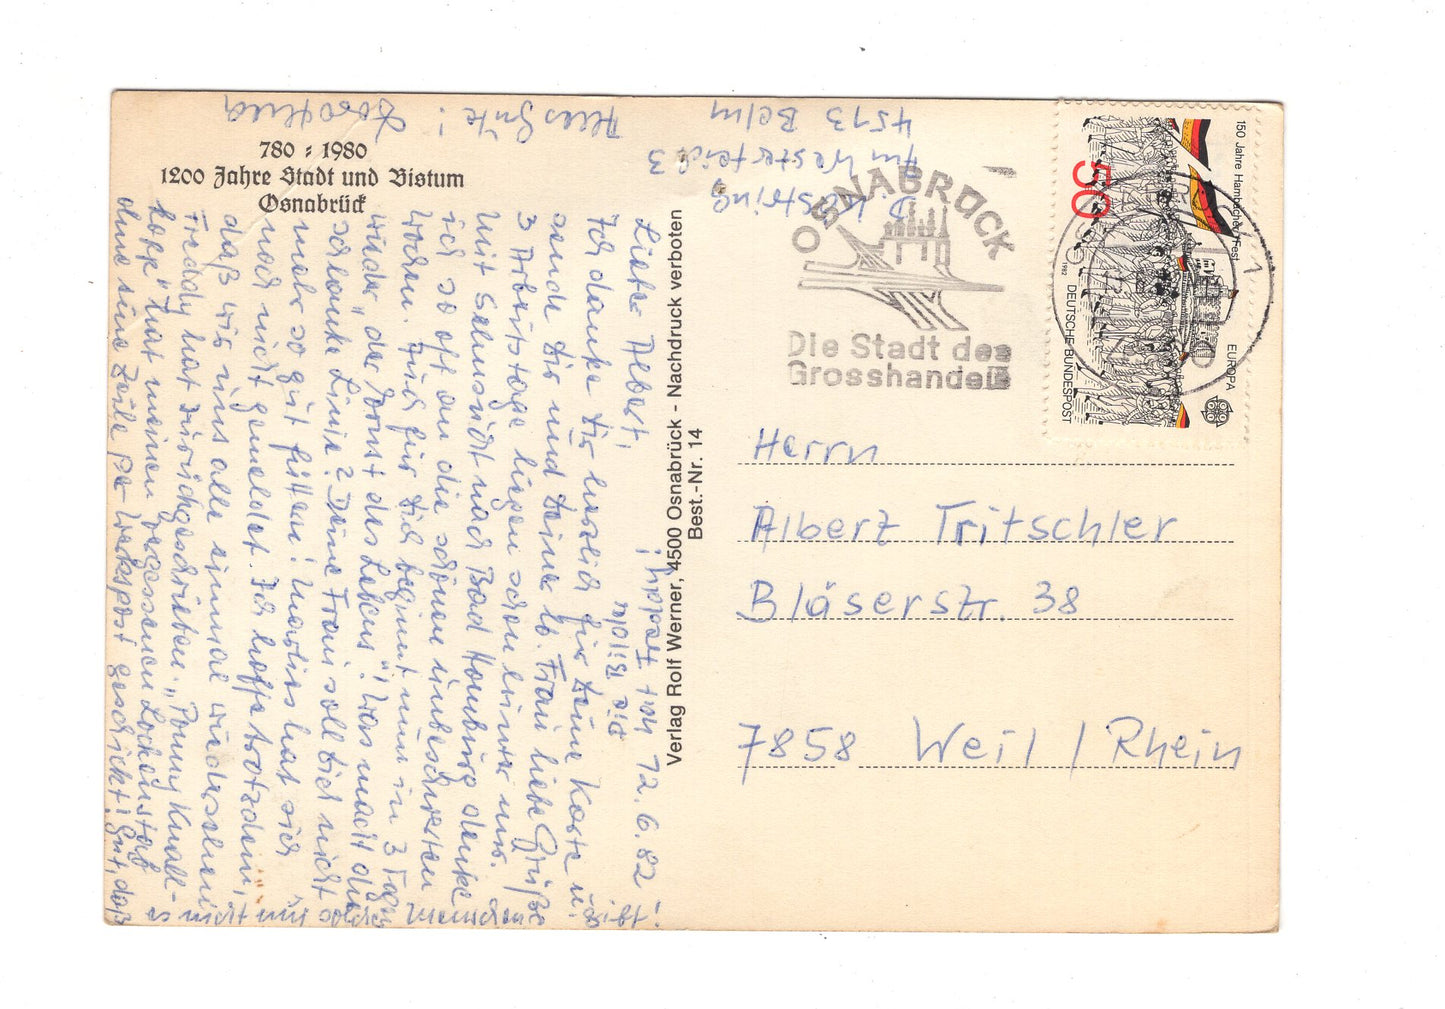 780 : 1980
1200 Jahre Stadt und Bistum
Osnabrück
D. Kestring
Am Westerfeld 3
4513 Belm
OSNABRÜCK
Die Stadt des
Grosshandels
150 Jahre Hambacher Fest
50
1982
EUROPA
DEUTSCHE BUNDESPOST
Verlag Rolf Werner, 4500 Osnabrück - Nachdruck verboten
Best.-Nr. 14
Herrn
Albert Tritschler
Bläserstr. 38
7858 Weil / Rhein
Lieber Albert! 12.6.82
Ich danke Dir herzlich für Deine Karte u.
sende Dir und Deiner lb. Frau liebe Grüße
3 Arbeitstage liegen schon hinter uns.
Mit Sehnsucht nach Bad Homburg denke
ich so oft an die schönen unbeschwerten
Wochen. Auch für Dich beginnt nun in 3 Tagen
wieder "der Ernst des Lebens". Was macht die
schlanke Linie? Deine Frau soll Dich nicht
mehr so gut füttern! Marlies hat sich
noch nicht gemeldet. Ich hoffe trotzdem,
daß wir uns alle einmal wiedersehen
Freddy hat zurückgeschrieben. "Ponny Knall-
kopp" hat meinen vergessenen Lockenstab
ohne eine Zeile per Werkspost geschickt! Gut, daß
es nicht nur solche Menschen gibt!
Die Bilder
mit Freddy!
Alles Gute!
Dorothea